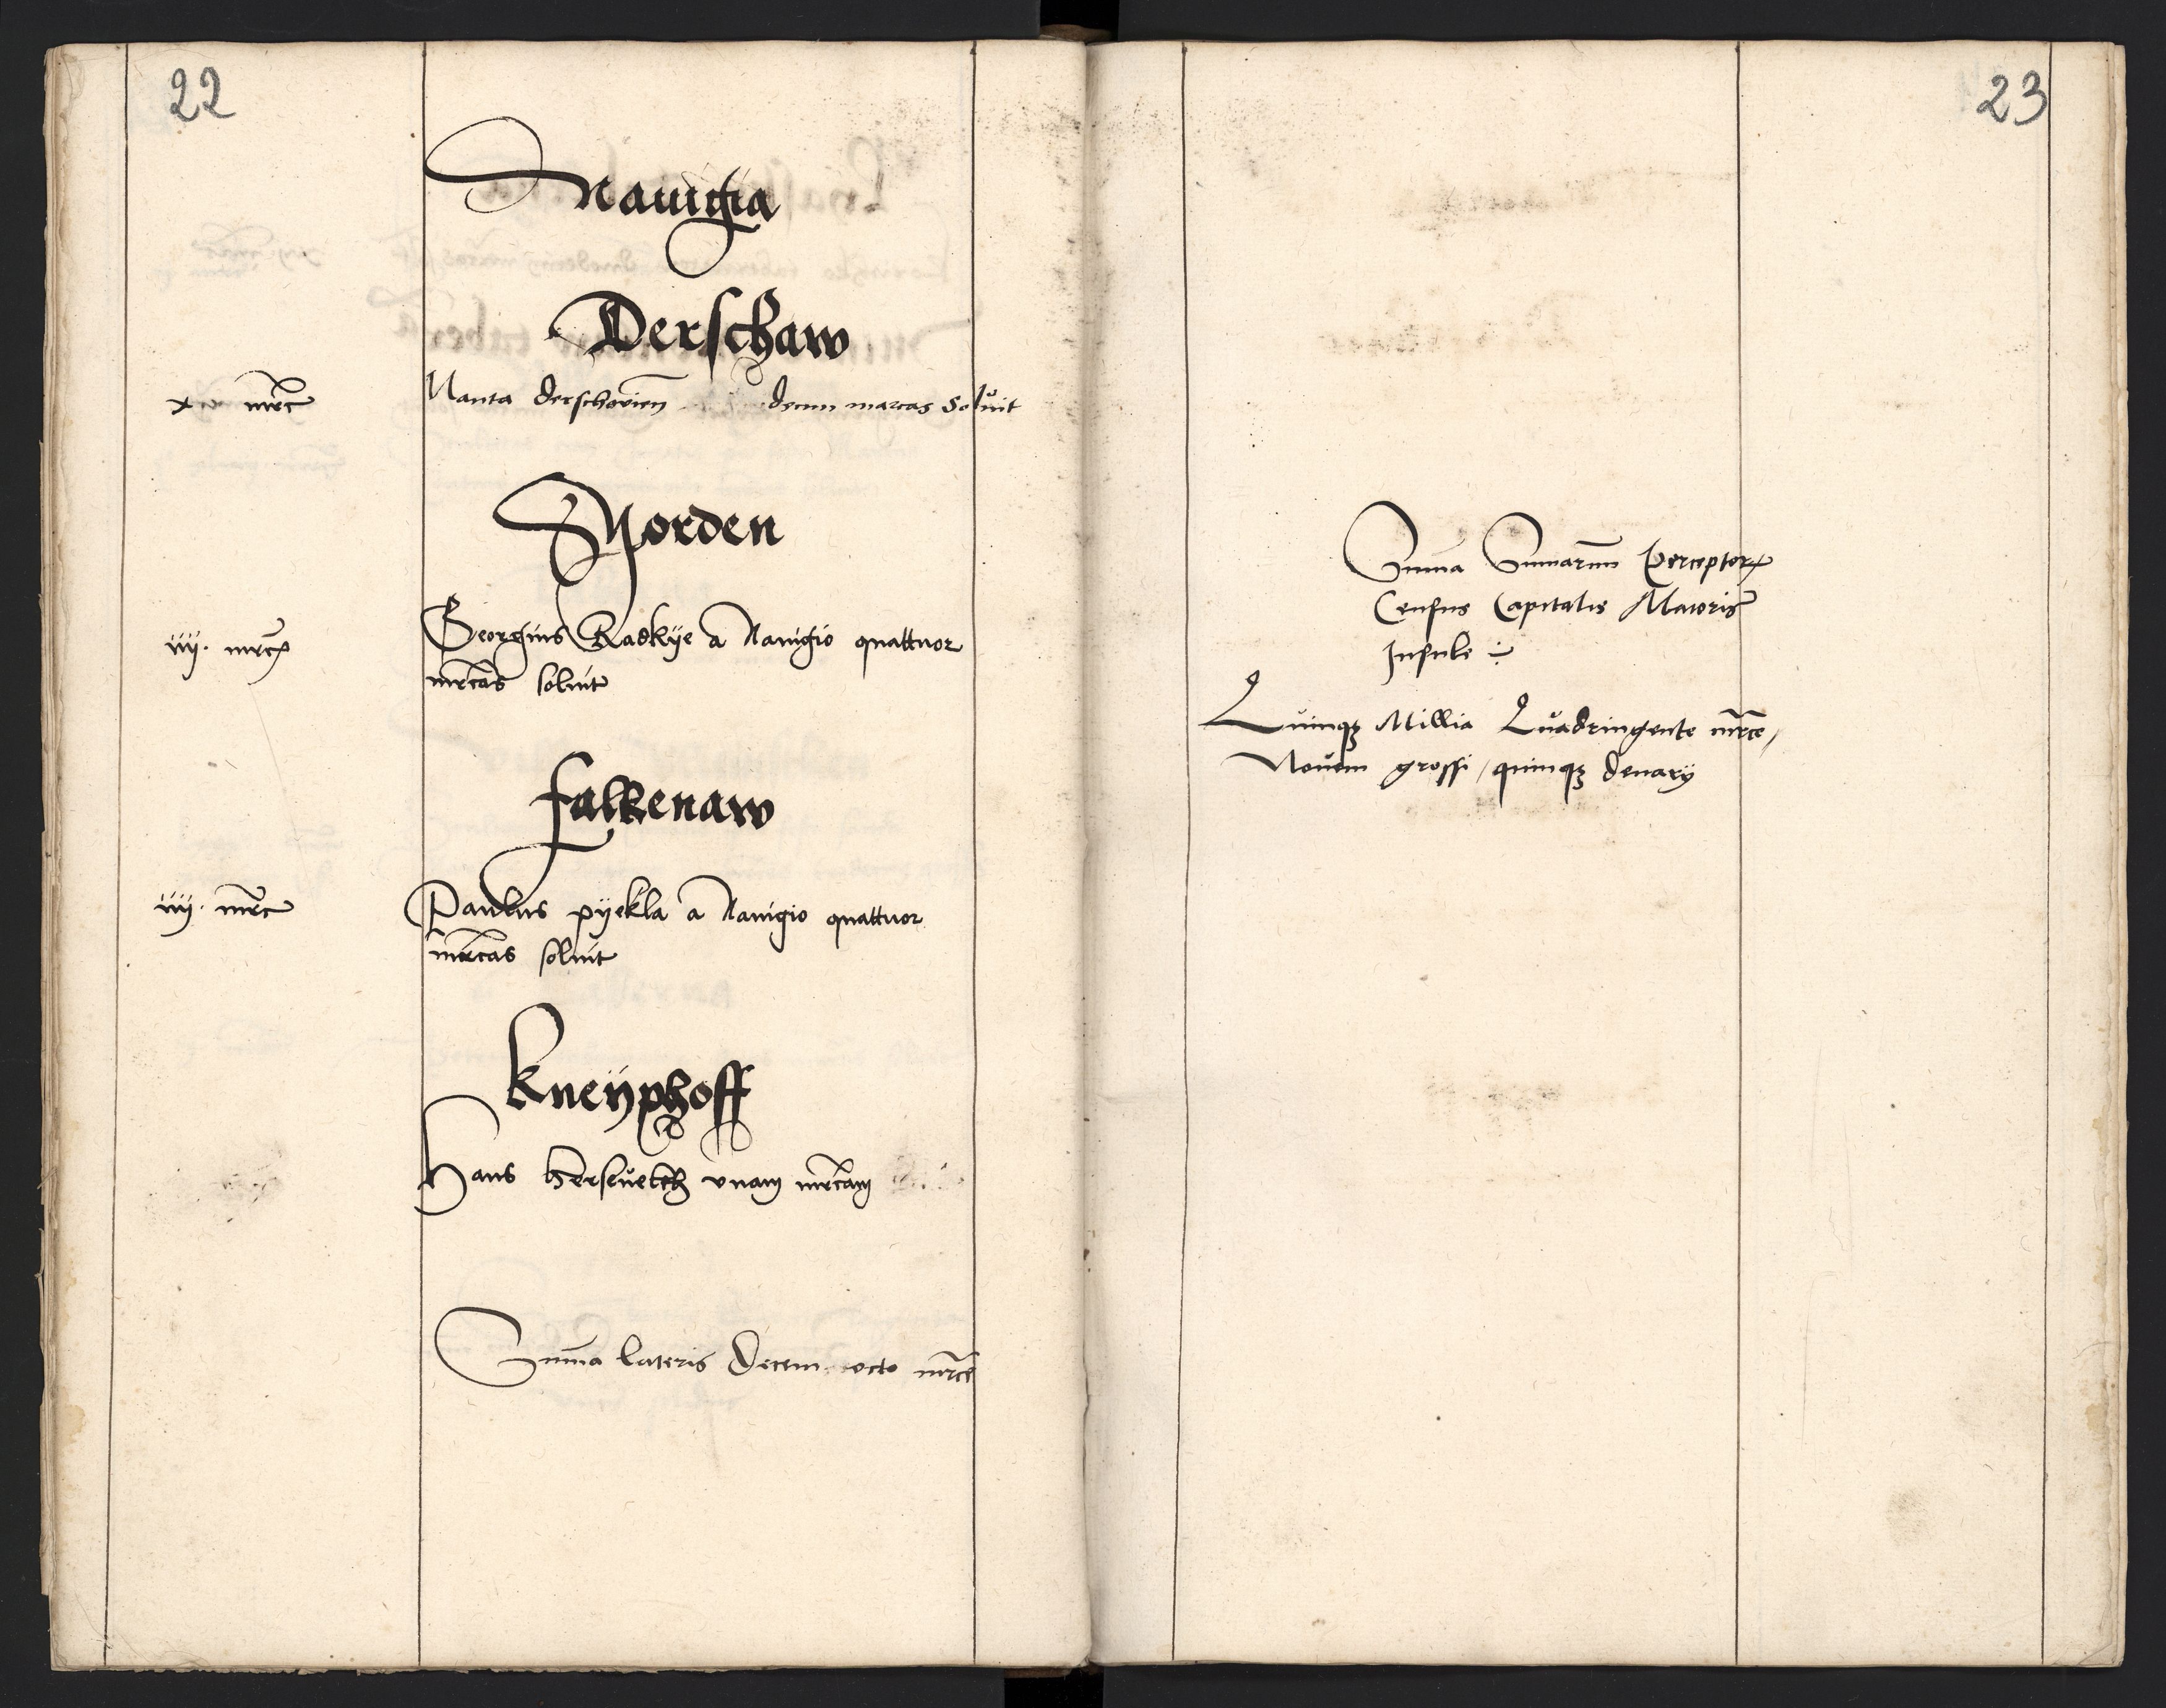 22
Nauigia
Derschaw
x mrc Nauta derschouien decem marcas soluit
Norden
iiij. mrc Georgius Radkÿe a Nauigio quattuor
mrcas soluit
falkenaw
iiij. mrc Paulus pÿekla a Nauigio quattuor
mrcas soluit
Kneÿphoff
Hans vnam mrcam
Summa lateris Decem octo mrce
23
Summa Sumarum Perceptor
Census Capitalis Maioris
Insule
Quinqz Millia Quadringente mrce,
Nouem grossi / quinqz denarÿ